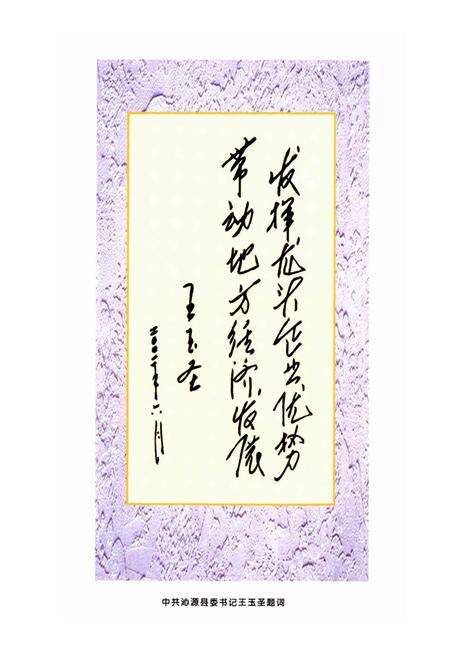 发挥龙头企业优势
带动地方经济发展
王玉圣
二〇〇二年六月
中共沁源县委书记王玉圣题词